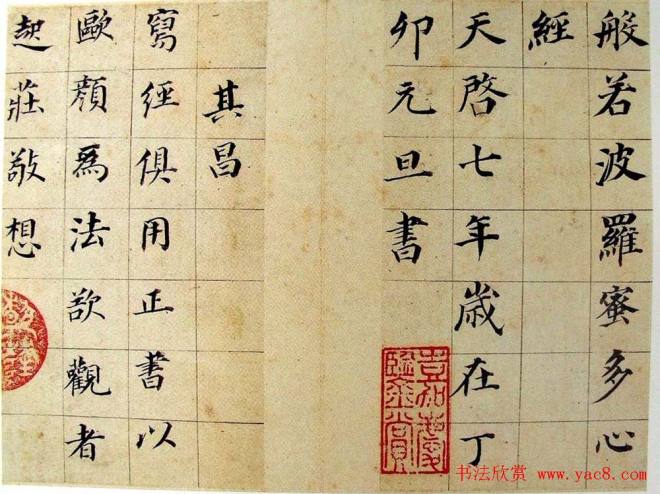 般若波羅蜜多心
經
天啓七年歲在丁
卯元旦書
其昌
寫經俱用正書以
歐顏為法欲觀者
起莊敬想
嘉慶
鑒賞
书法欣赏 www.yac8.com